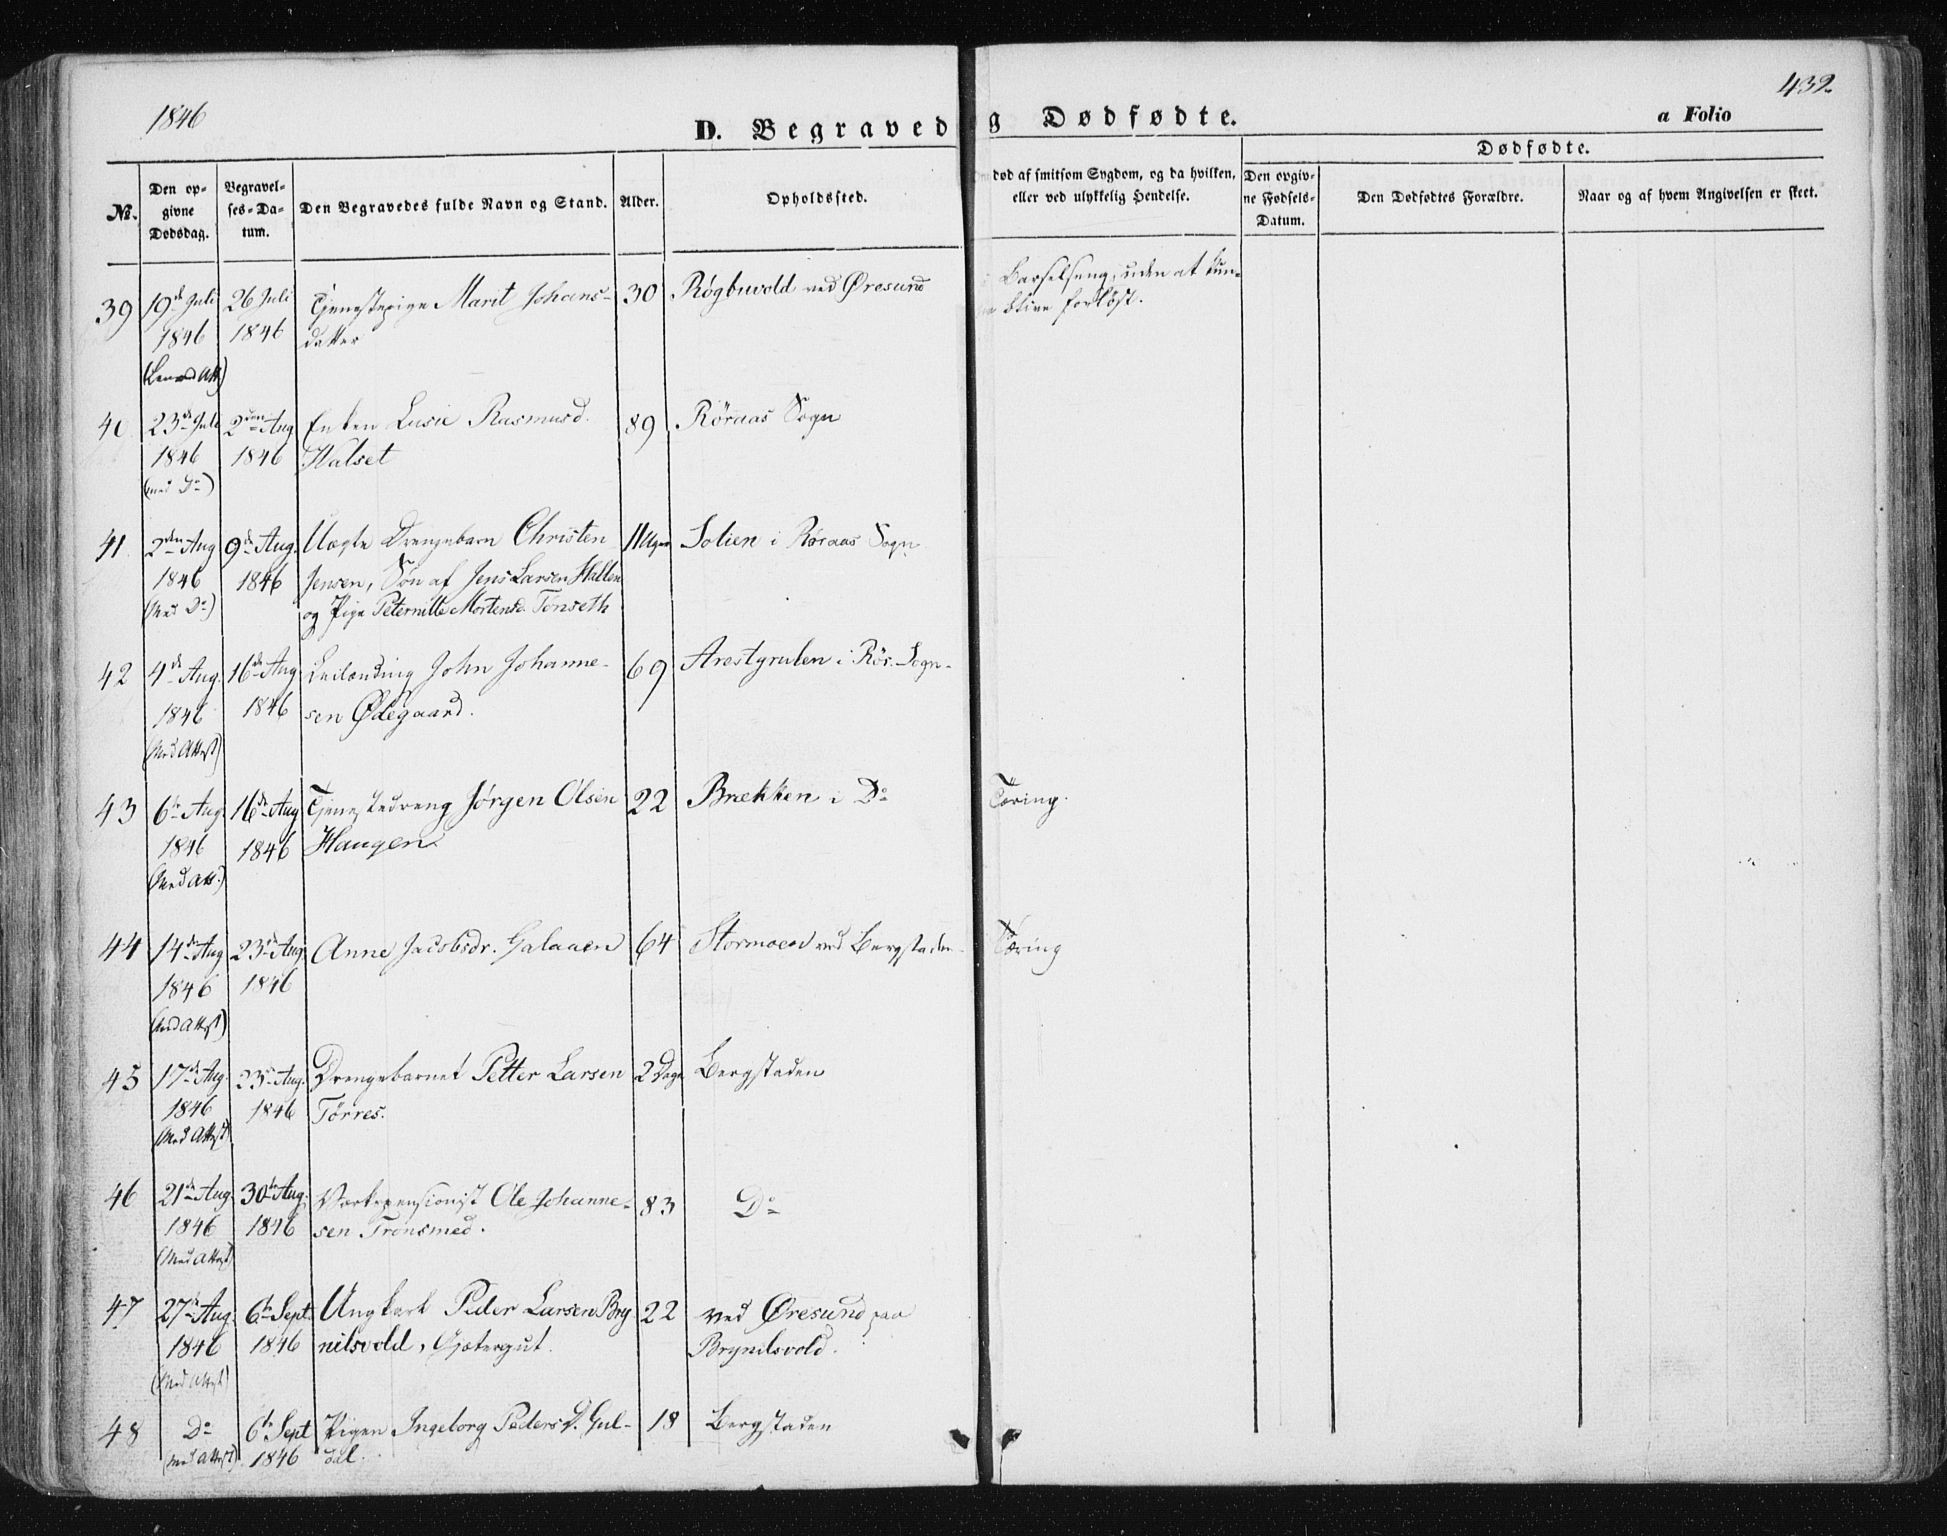 1846
432.
D. Begraved
g Dødfødte.
a Folio
No.
Den op-
givne
Dødsdag.
Begravel-
ses-Da-
tum.
Den Begravedes fulde Navn og Stand.
Alder.
Opholdssted.
død af smitsom Sygdom, og da hvilken,
eller ved ulykkelig Hendelse.
Dødfødte.
Den opgiv-
ne Fødsels-
Datum.
Den Dødfødtes Forældre.
Naar og af hvem Angivelsen er skeet.
39 19de Juli 26 Juli Tjenestepige Marit Johans- 30 Røgbuvold ved Øresund Barselseng, uden at kun-
1846 1846 datter blive forløst.
40 23de Juli 2den Aug Enken Lusie Rasmusd. 89 Røraas Sogn
1846 1846 Halset
(med Do)
41. 2den Aug 9de Aug. Uægte Drengebarn Christen 11 Uger Solien i Røraas Sogn
1846 1846 Jensen, Søn af Jens Larsen Hallen
(Med Do) og Pige Peternille Mortensd. Tønseth
42 4de Aug. 16de Aug Leilænding John Johanne- 69 Arestgruben i Rør. Sogn-
1846 1846 sen Ødegaard.
(Med Attest)
43 6te Aug. 16de Aug Tjenestedreng Jørgen Olsen 22 Brækken i Do Tæring.
1846 1846 Haugen.
(Med Att.)
44 14de Aug 23de Aug Anne Jacobsdr. Galaaen 64 Stormoen ved Bergstaden Tæring
1846 1846
(Med Attest)
45 17de Aug. 23de Aug. Drengebarnet Petter Larsen 2 Dage Bergstaden
1846 1846 Tørres.
(Med Attest)
46 21de Aug. 30te Aug. Værkspensionist Ole Johanne- 83 Do
1846 1846 sen Trønsmed.
(Med Attest)
47 27de Aug. 6te Sept. Ungkarl Peder Larsen Bry 22 ved Øresund paa
1846 1846 nilsvold, Gjætergut. Brynilsvold.
(Med Attest)
48 Do 6te Sept Pigen Ingeborg PedersD. Gul- 18 Bergstaden
(med Attest) 1846 dal.